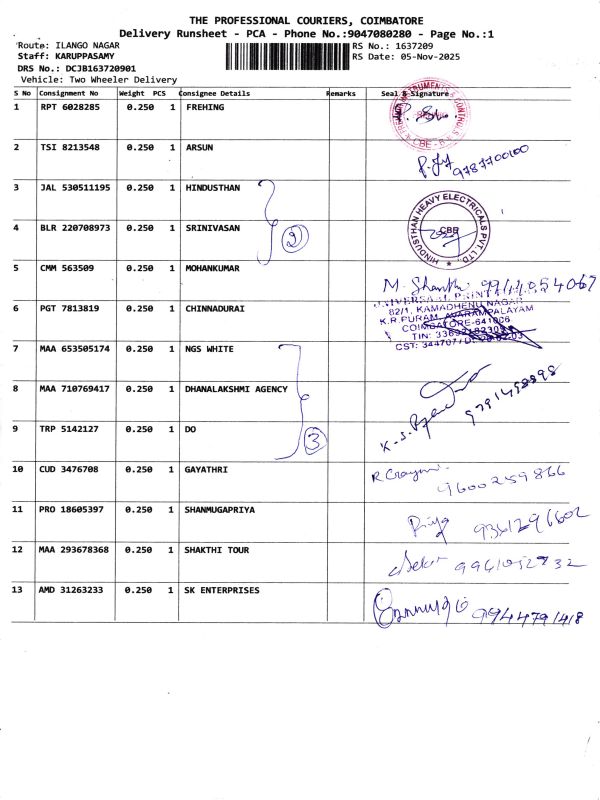 THE PROFESSIONAL COURIERS, COIMBATORE
Delivery Runsheet - PCA - Phone No.:9047080280 - Page No.:1
Route: ILANGO NAGAR
RS No.: 1637209
Staff: KARUPPASAMY
RS Date: 05-Nov-2025
DRS No.: DCJB163720901
Vehicle: Two Wheeler Delivery
S No Consignment No Weight PCS Consignee Details Remarks Seal & Signature
1 RPT 6028285 0.250 1 FREHING
2 TSI 8213548 0.250 1 ARSUN 9787700100
3 JAL 530511195 0.250 1 HINDUSTHAN
HINDUSTHAN HEAVY ELECTRICALS PVT. LTD.
CBE
4 BLR 220708973 0.250 1 SRINIVASAN
2
5 CMM 563509 0.250 1 MOHANKUMAR
M. Shanthi 9944054067
6 PGT 7813819 0.250 1 CHINNADURAI
82/1, KAMADHENU NAGAR
K.R.PURAM, AVARAMPALAYAM
COIMBATORE-641006
7 MAA 653505174 0.250 1 NGS WHITE
8 MAA 710769417 0.250 1 DHANALAKSHMI AGENCY
9791498898
9 TRP 5142127 0.250 1 DO
3
10 CUD 3476708 0.250 1 GAYATHRI
9600259866
11 PRO 18605397 0.250 1 SHANMUGAPRIYA
Priya 9361296602
12 MAA 293678368 0.250 1 SHAKTHI TOUR
13 AMD 31263233 0.250 1 SK ENTERPRISES
9944791418